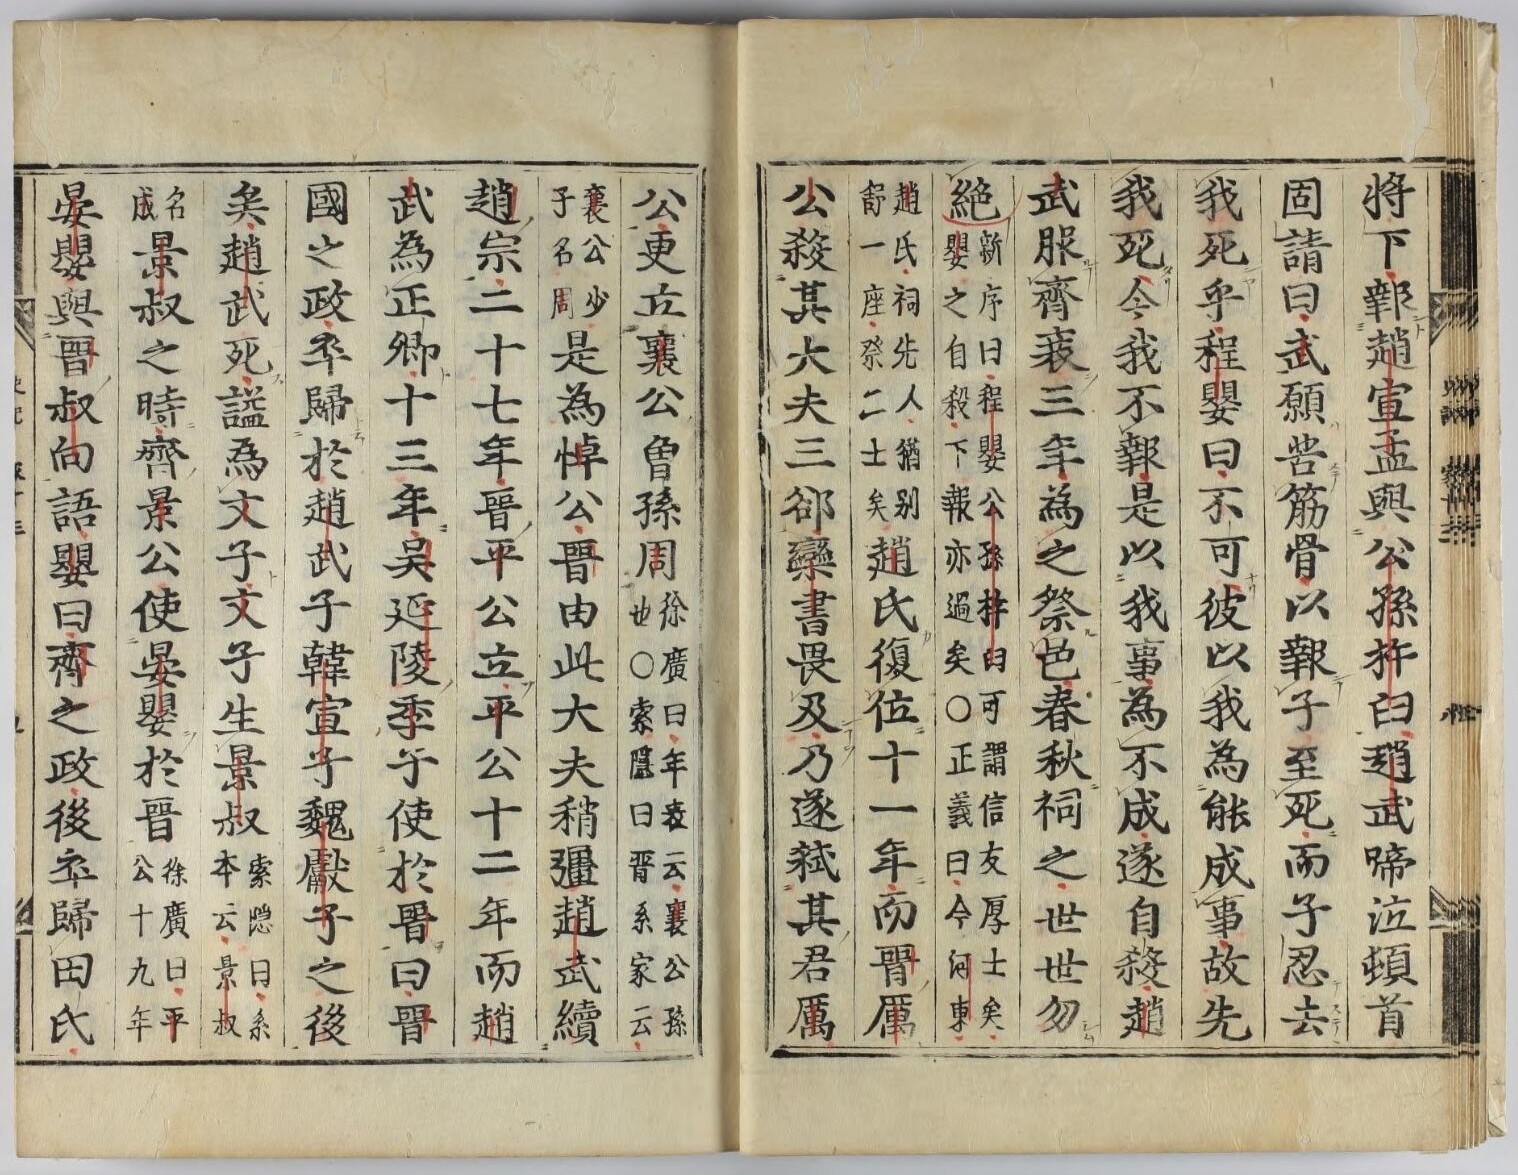 将下報趙宣孟與公孫杵臼趙武啼泣頓首
固請曰武願苦筋骨以報子至死而子忍去
我死乎程嬰曰不可彼以我為能成事故先
我死今我不報是以我事為不成遂自殺趙
武服齊衰三年為之祭邑春秋祠之世世勿
絶新序曰程嬰公孫杵臼可謂信友厚士矣
嬰之自殺下報亦過矣〇正義曰今河東
趙氏祠先人猶别
舒一座祭二士矣趙氏復位十一年而晋厲
公殺其大夫三郤欒書畏及乃遂弑其君厲
公更立襄公曾孫周徐廣曰年表云襄公孫
也〇索隱曰晋系家云
襄公少
子名周是為悼公晋由此大夫稍彊趙武續
趙宗二十七年晋平公立平公十二年而趙
武為正卿十三年吴延陵季子使於晋曰晋
國之政卒歸於趙武子韓宣子魏獻子之後
矣趙武死謚為文子文子生景叔索隠曰系
本云景叔
名
成景叔之時齊景公使晏嬰於晋徐廣曰平
公十九年
晏嬰與晋叔向語嬰曰齊之政後卒歸田氏